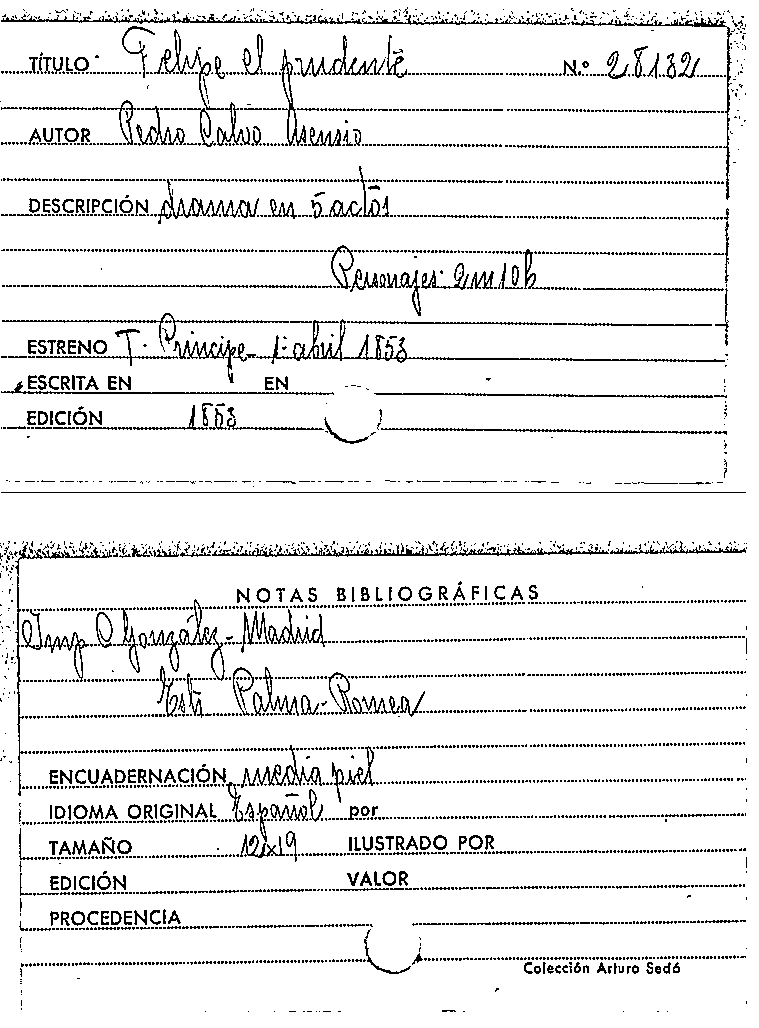 TÍTULO Felipe el prudente N.º 28132
AUTOR Pedro Calvo Asensio
DESCRIPCIÓN drama en 5 actos
Personajes: 2m 10h
ESTRENO T. Principe - 1º abril 1853
ESCRITA EN EN
EDICIÓN 1853
NOTAS BIBLIOGRÁFICAS
Imp C González - Madrid
Estr Palma - Romea
ENCUADERNACIÓN media piel
IDIOMA ORIGINAL Español por
TAMAÑO 12x19 ILUSTRADO POR
EDICIÓN VALOR
PROCEDENCIA
Colección Arturo Sedó